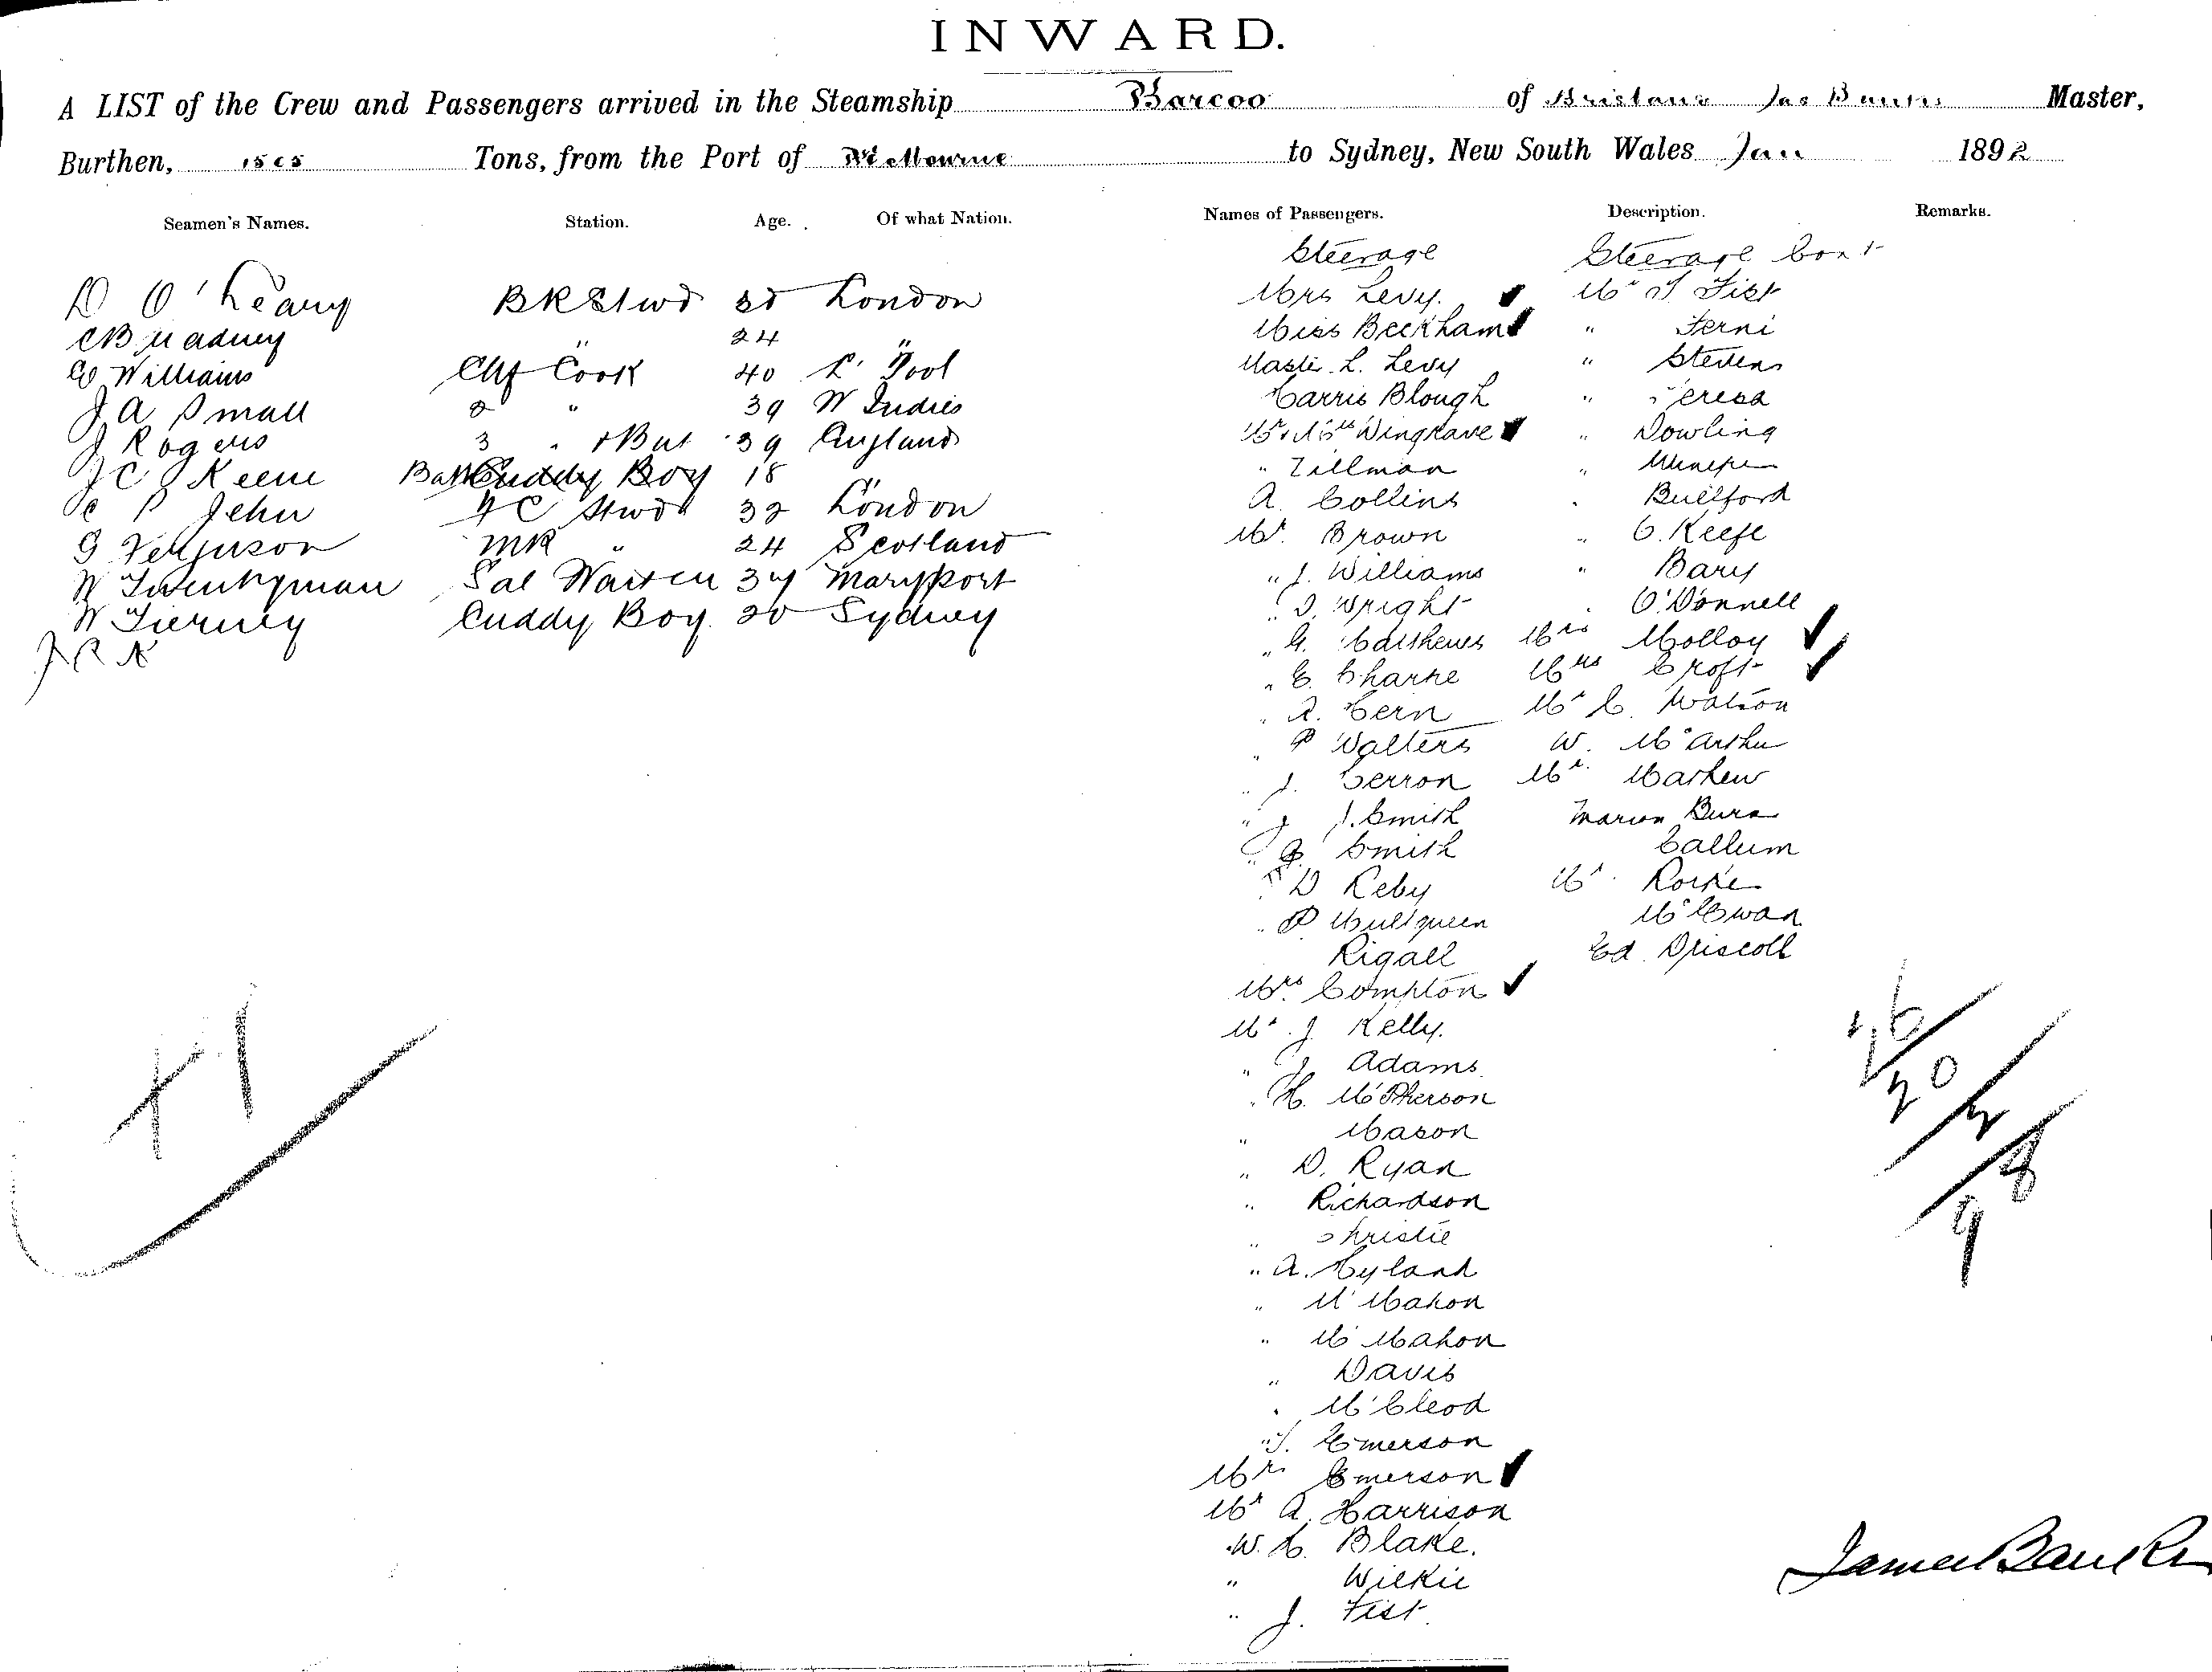 INWARD.
A LIST of the Crew and Passengers arrived in the Steamship Barcoo of Brisbane Jas Banks Master,
Burthen, 1505 Tons, from the Port of Melbourne to Sydney, New South Wales Jan 1892
Seamen's Names. Station. Age. Of what Nation.
D O'Leary BKStwd 30 London
C Bradney " 24 "
W Williams Chf Cook 40 L' Pool
J A Small 2 " 39 W Indies
J Rogers 3 " + But 39 England
J C Keene Cuddy Boy 18 "
P John F C Stwd 32 London
G Ferguson MR " 24 Scotland
W Twentyman Sal Waiter 34 Maryport
W Tierney Cuddy Boy. 20 Sydney
Names of Passengers.
Steerage
Mrs Levy.
Miss Beckham
Master L. Levy
Harris Blough
Mr & Mrs Wingrave
" Tillman
A. Collins
Mr. Brown
" J. Williams
" D. Wright
" G. Matthews
" C. Sharke
" A. Hern
" P Walters
" J. Herron
" J J. Smith
" G. Smith
" D Reby
" P Mulqueen
Rigall
Mrs Compton
Mr. J. Kelly.
" J. Adams
" H. McPherson
" Mason
" D. Ryan
" Richardson
" Christie
" A. Hyland
" McMahon
" McMahon
" Davis
" McCleod
" J. Emerson
Mrs Emerson
Mr A. Harrison
" W. H. Blake.
" Wilkie
" J. Fist
Description. Remarks.
Steerage Cont
Mr T Fist
" Ferni
" Stevens
" Teresa
" Dowling
"
" Bullford
" O.Keefe
" Bary
" O'Donnell
Mrs Molloy
Mrs Croft
Mr C. Watson
W. McArthur
Mr. Mathew
Marion Burn
Callum
Mr. Rorke
McEwan
Ed. Driscoll
41
26/20/2/98
James Banks